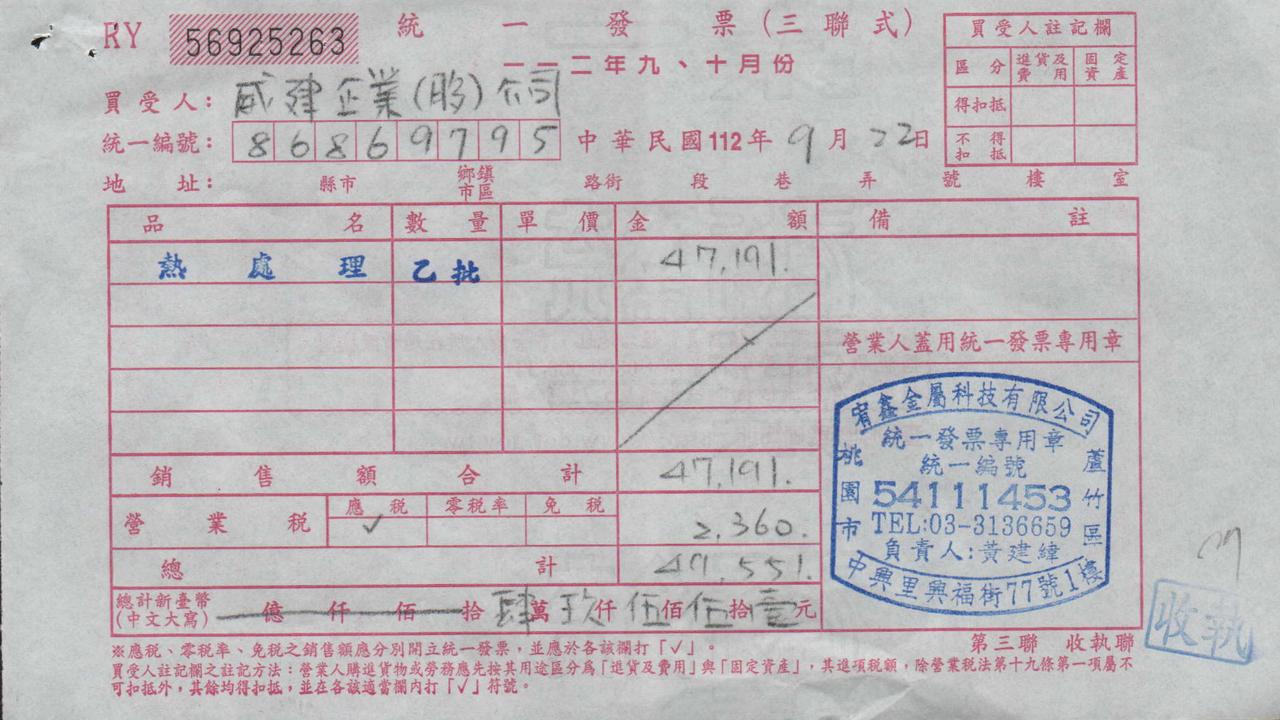 RY 56925263 統一發票(三聯式)
一一二年九、十月份
買受人註記欄
區分 進貨及費用 固定資產
得扣抵
不得扣抵
買受人: 威建企業(股)公司
統一編號: 86869795 中華民國112年9月22日
地址: 縣市 鄉鎮市區 路街 段 巷 弄 號 樓 室
品名 數量 單價 金額 備註
熱處理 乙批 47,191.
營業人蓋用統一發票專用章
銷售額合計 47,191.
營業稅 應稅 零稅率 免稅
✓ 2,360.
總計 49,551.
總計新臺幣(中文大寫) 億仟佰拾肆萬玖仟伍佰伍拾壹元
宥鑫金屬科技有限公司
統一發票專用章
統一編號
54111453
TEL:03-3136659
負責人:黃建緯
桃園市 蘆竹區
中興里興福街77號1樓
收執
第三聯 收執聯
※應稅、零稅率、免稅之銷售額應分別開立統一發票,並應於各該欄打「✓」。
買受人註記欄之註記方法:營業人購進貨物或勞務應先按其用途區分為「進貨及費用」與「固定資產」,其進項稅額,除營業稅法第十九條第一項屬不
可扣抵外,其餘均得扣抵,並在各該適當欄內打「✓」符號。